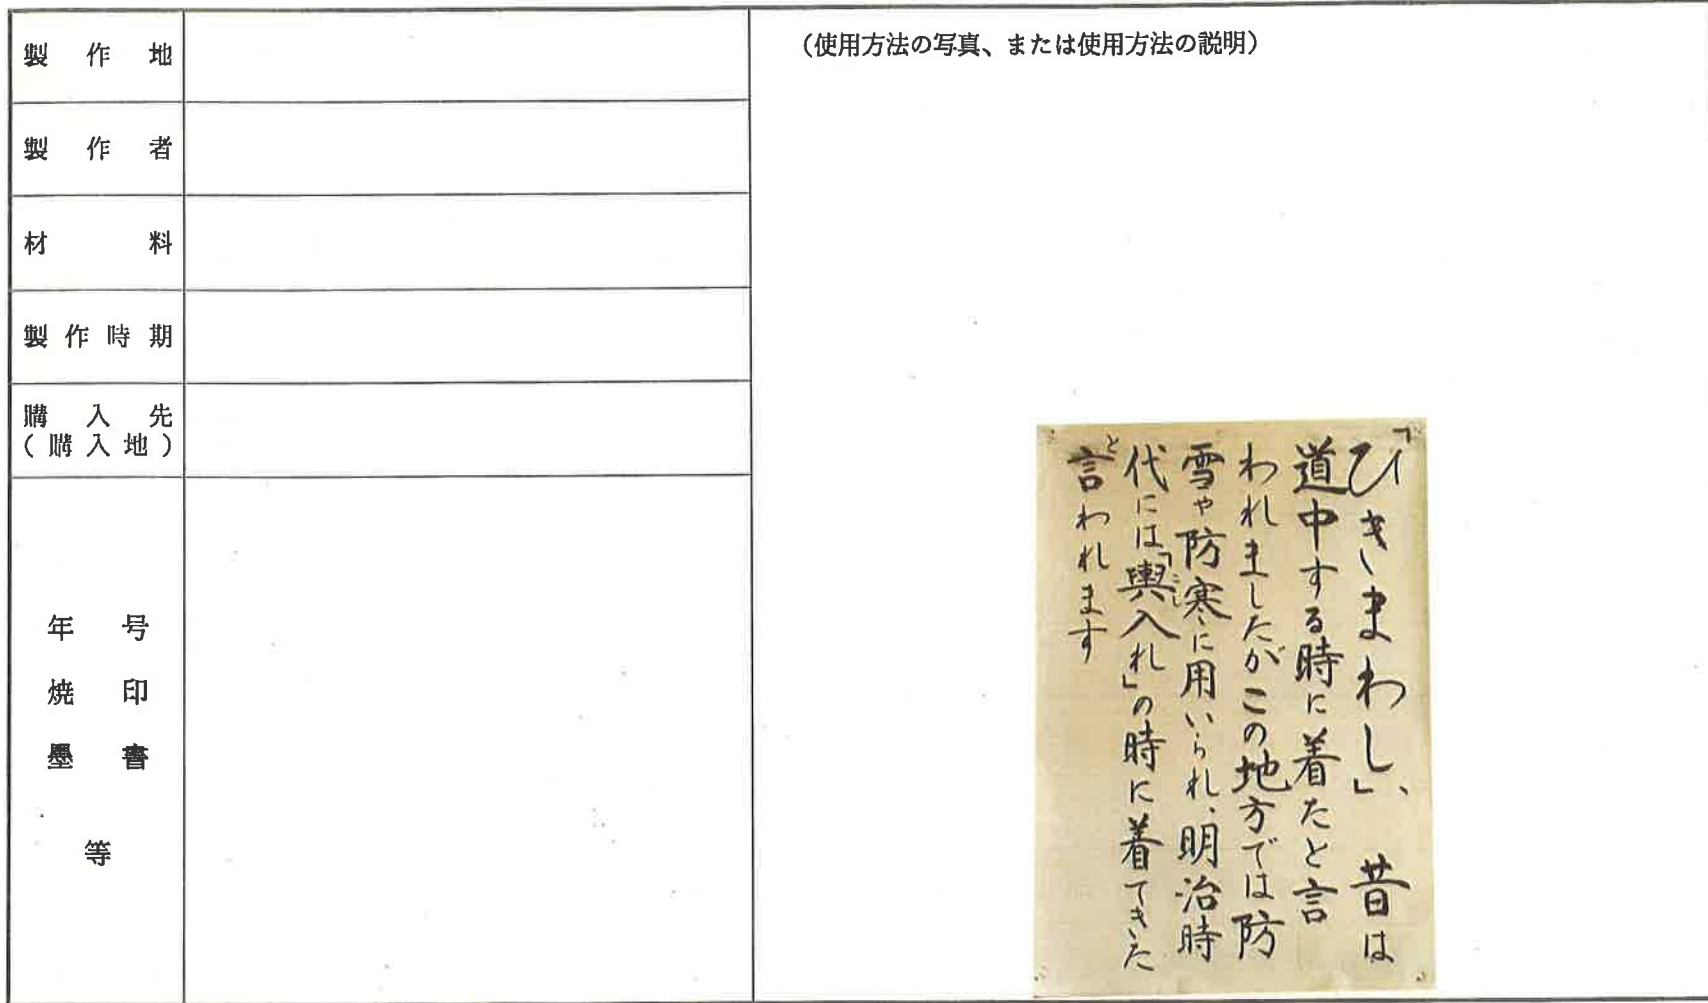 製作地
製作者
材料
製作時期
購入先
(購入地)
年号
焼印
墨書
等
(使用方法の写真、または使用方法の説明)
「ひきまわし」、昔は
道中する時に着たと言
われましたがこの地方では防
雪や防寒に用いられ、明治時
代には「輿入れ」の時に着てきた
こし
と言われます